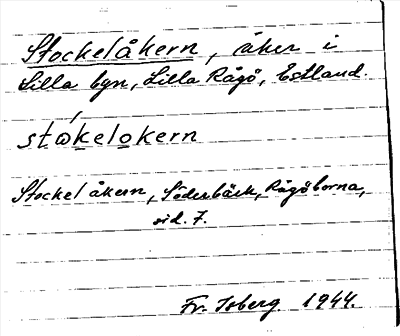 Stockelåkern, åker i
Lilla byn, Lilla Rågö, Estland.
stωkelokern
Stockelåkern, Söderbäck, Rågöborna,
sid. 7.
Fr. Isberg 1944.